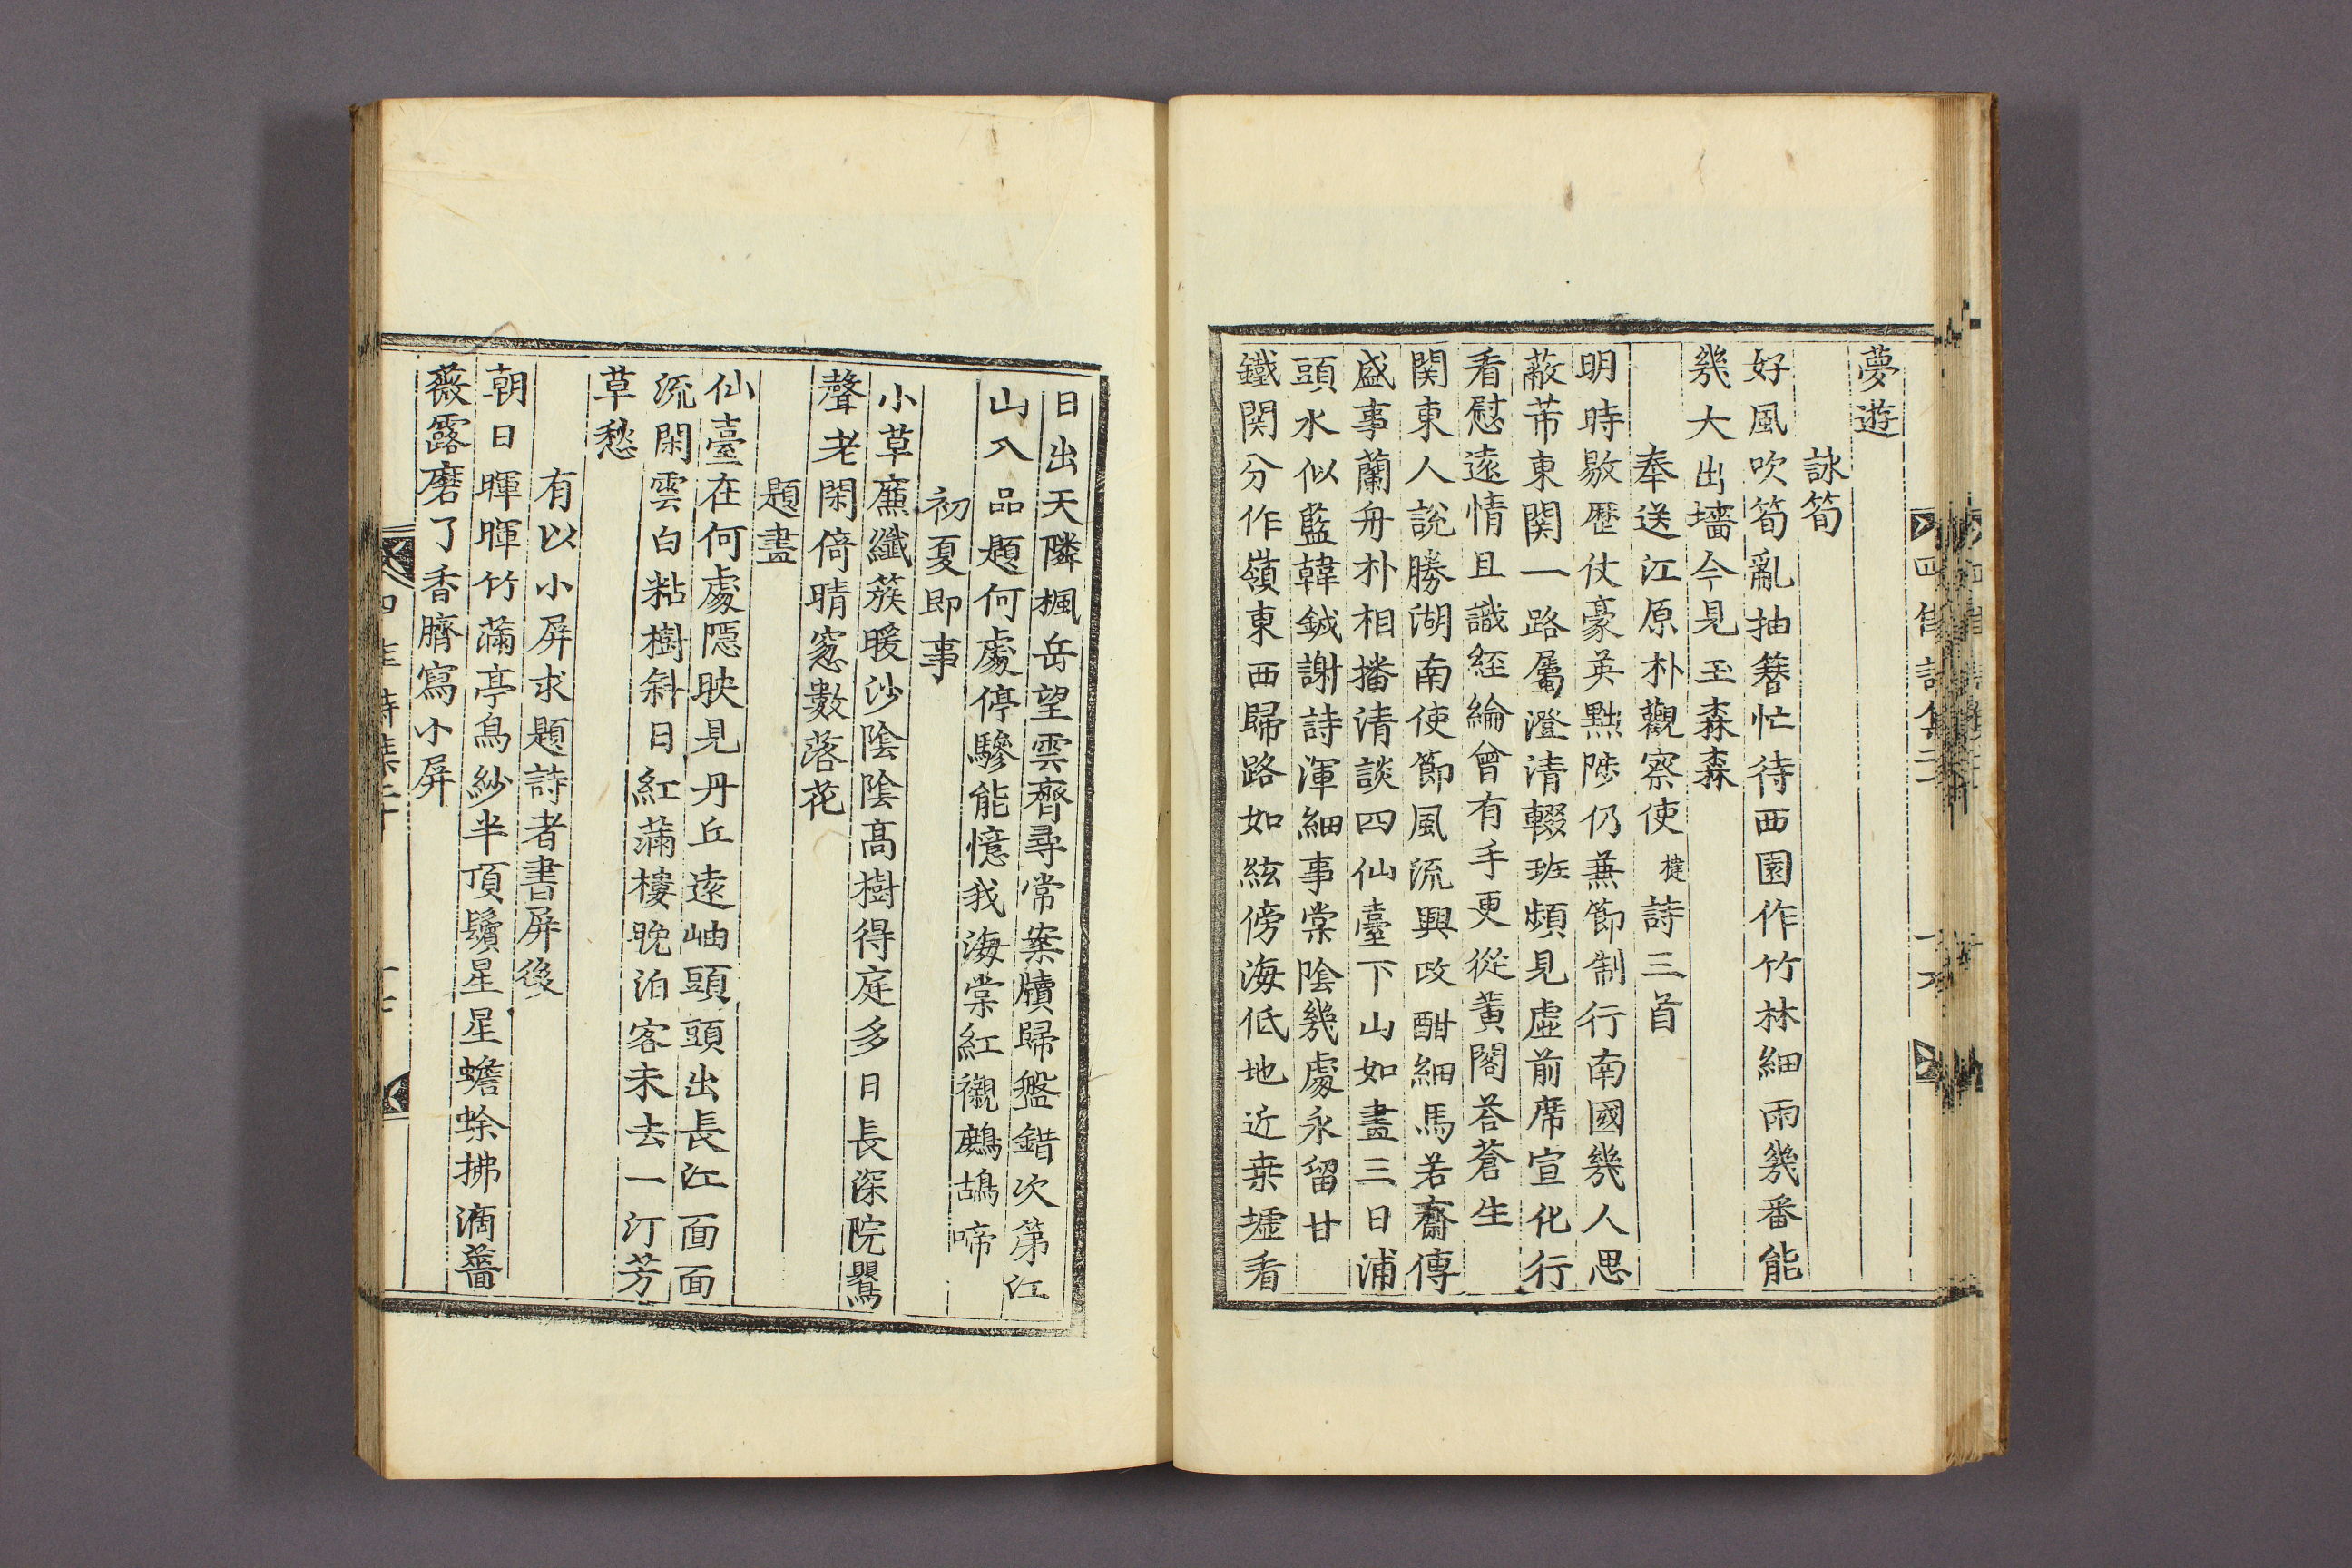 夢遊
詠筍
好風吹筍亂抽簪忙待西園作竹林細雨幾番能
幾大出墻今見玉森森
奉送江原朴觀察使楗詩三首
明時敭歷仗豪英黜陟仍兼節制行南國幾人思
蔽芾東関一路屬澄清輟班頻見虛前席宣化行
看慰遠情且識経綸曾有手更從黃閣荅蒼生
関東人說勝湖南使節風流興政酣細馬若齋傳
盛事蘭舟朴相播清談四仙臺下山如畫三日浦
頭水似藍韓鉞謝詩渾細事棠陰幾處永留甘
鐵関分作嶺東西歸路如絃傍海低地近桒墟看
日出天隣楓岳望雲齊尋常案牘歸盤錯次第江
山入品題何處停驂能憶我海棠紅襯鷓鴣啼
初夏即事
小草廉纖蔟暖沙陰陰高樹得庭多日長深院鸎
聲老閑倚晴窓數落花
題畫
仙臺在何處隠映見丹丘遠岫頭頭出長江面面
流閑雲白粘樹斜日紅滿樓晚泊客未去一汀芳
草愁
有以小屏求題詩者書屏後
朝日暉暉竹滿亭烏紗半頂鬢星星蟾蜍拂滴薔
薇露磨了香臍寫小屏